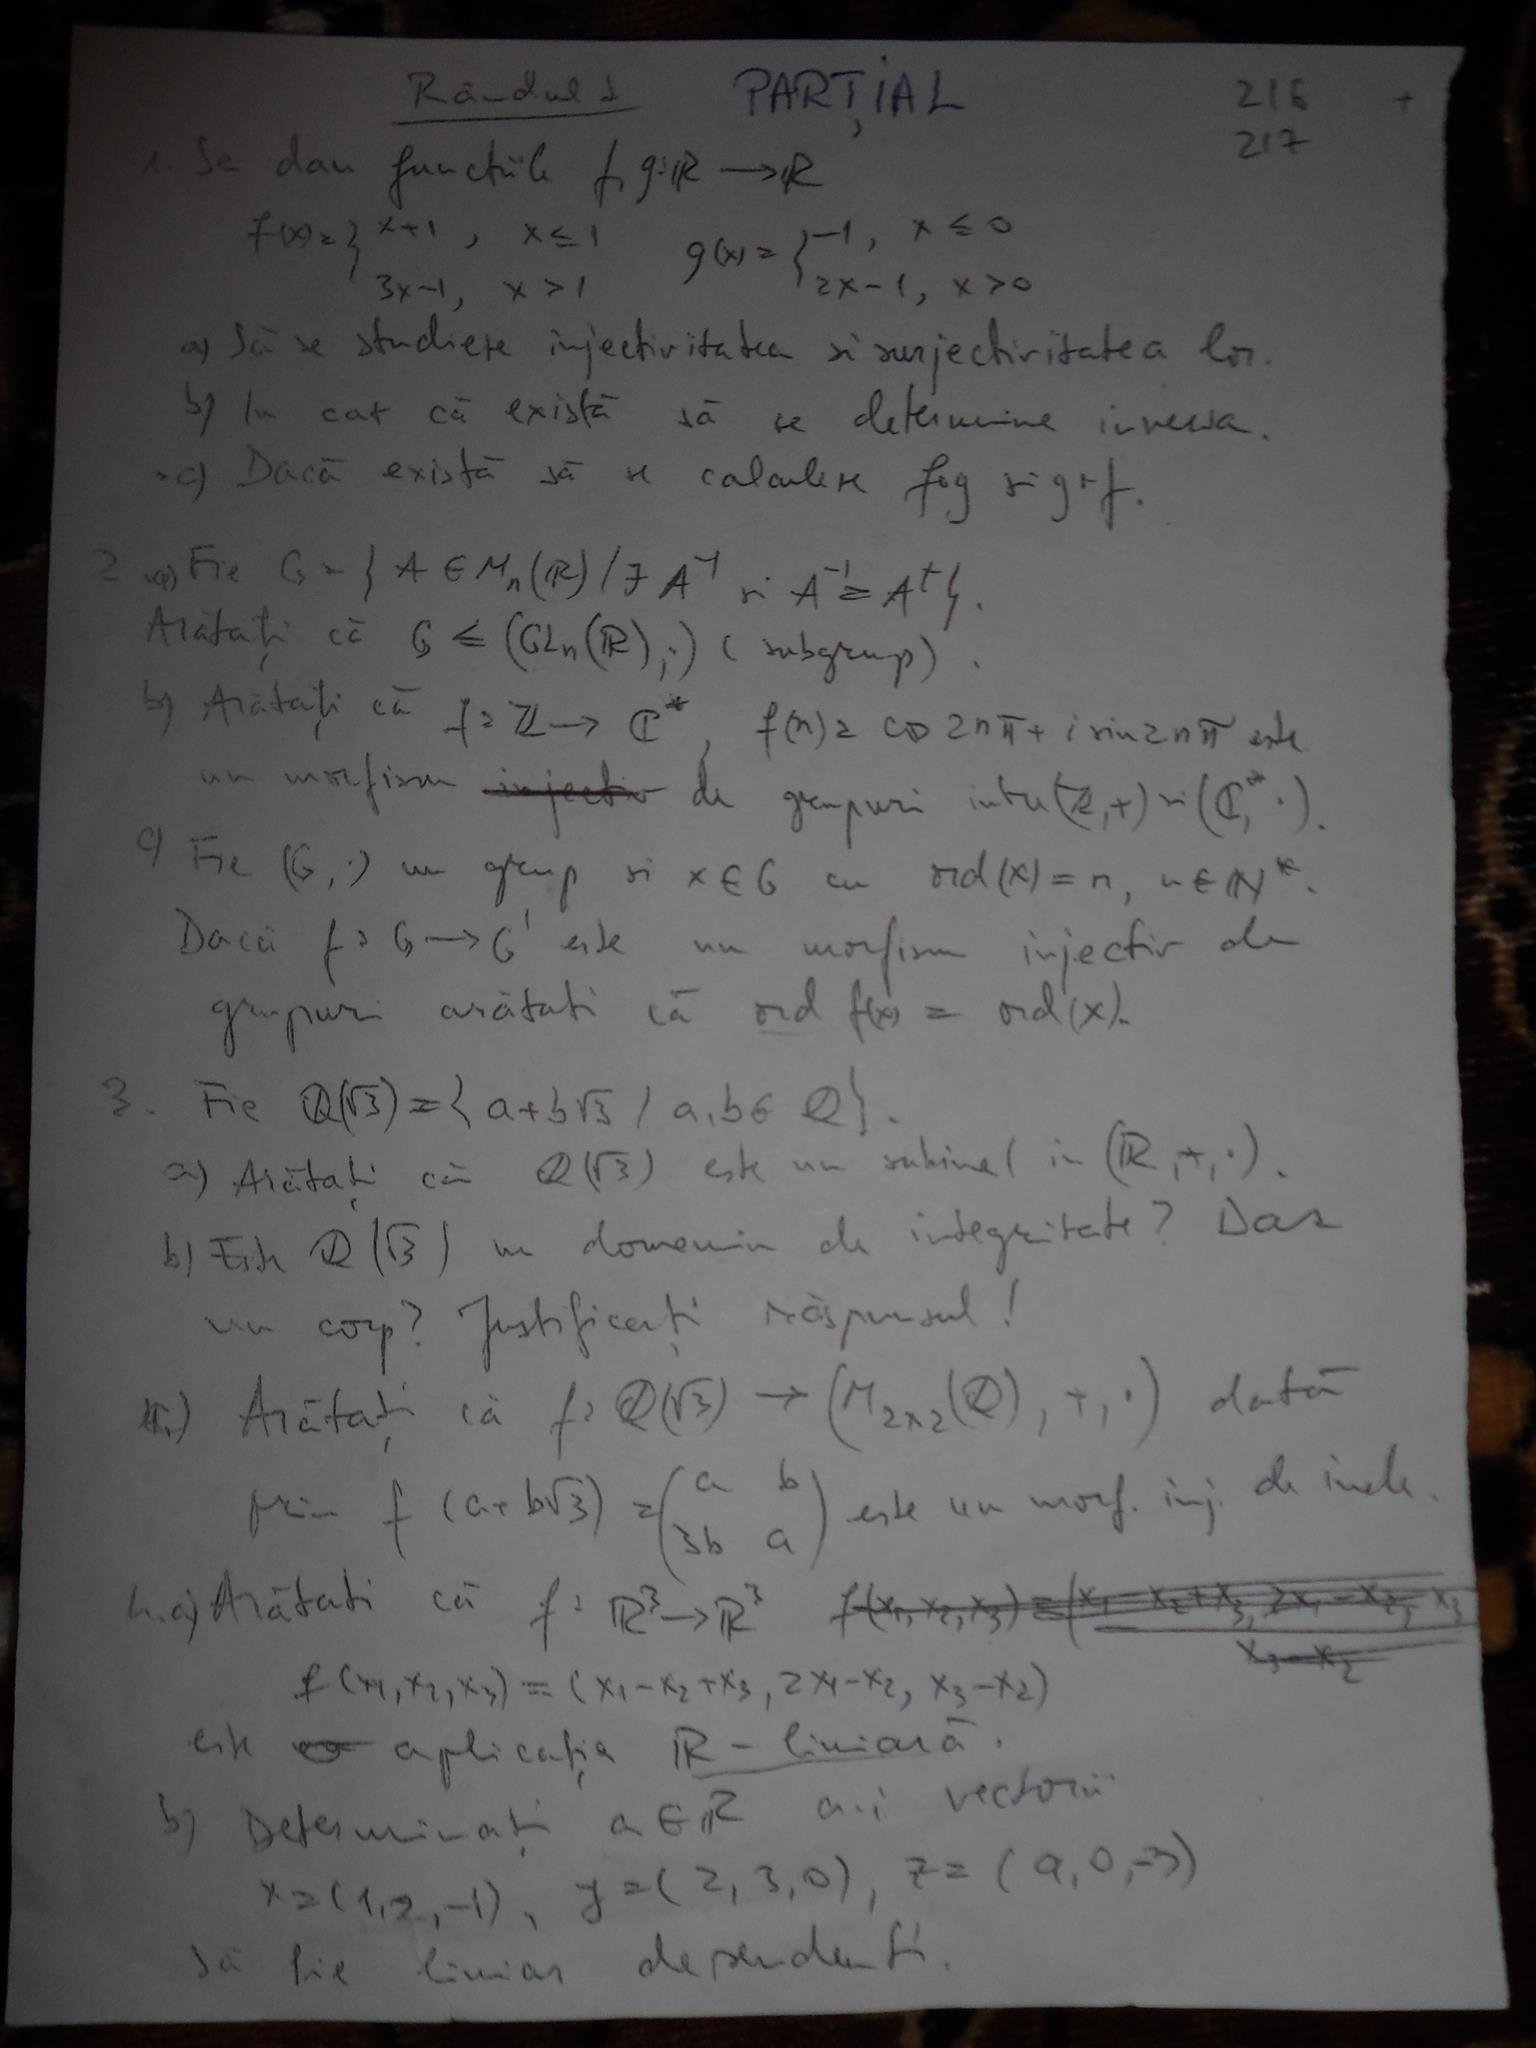 Rândul 1 PARȚIAL 216 +
217
1. Se dau funcțiile f, g: ℝ → ℝ
f(x) = { x+1, x ≤ 1 g(x) = { -1, x ≤ 0
3x-1, x > 1 2x-1, x > 0
a) Să se studieze injectivitatea si surjectivitatea lor.
b) In caz că există să se determine inversa.
c) Dacă există să se calculeze fog si g+f.
2 a) Fie G = { A ∈ Mn(ℝ) / ∃ A⁻¹ si A⁻¹ = Aᵗ }.
Arătați că G ≤ (GLn(ℝ), ·) (subgrup).
b) Arătați că f: ℤ → ℂ*, f(n) = cos 2nπ + i sin 2nπ este
un morfism injectiv de grupuri intre (ℤ, +) si (ℂ*, ·).
c) Fie (G, ·) un grup si x ∈ G cu ord(x) = n, n ∈ ℕ*.
Dacă f: G → G' este un morfism injectiv de
grupuri arătati că ord f(x) = ord(x).
3. Fie ℚ(√3) = { a+b√3 / a, b ∈ ℚ }.
a) Arătați că ℚ(√3) este un subinel in (ℝ, +, ·).
b) Este ℚ(√3) un domeniu de integritate? Dar
un corp? Justificați răspunsul!
Arătați că f: ℚ(√3) → (M2×2(ℚ), +, ·) dată
prin f(a+b√3) = ( a b ) este un morf. inj. de inele.
( 3b a )
4. a) Arătati că f: ℝ³ → ℝ³ f(x1, x2, x3) = (x1 - x2 + x3, 2x1 - x2, x3
x3 - x2
f(x1, x2, x3) = (x1 - x2 + x3, 2x1 - x2, x3 - x2)
este aplicație ℝ - liniară.
b) Determinați a ∈ ℝ a.i vectorii
x = (1, 2, -1), y = (2, 3, 0), z = (a, 0, -3)
să fie liniar dependenți.